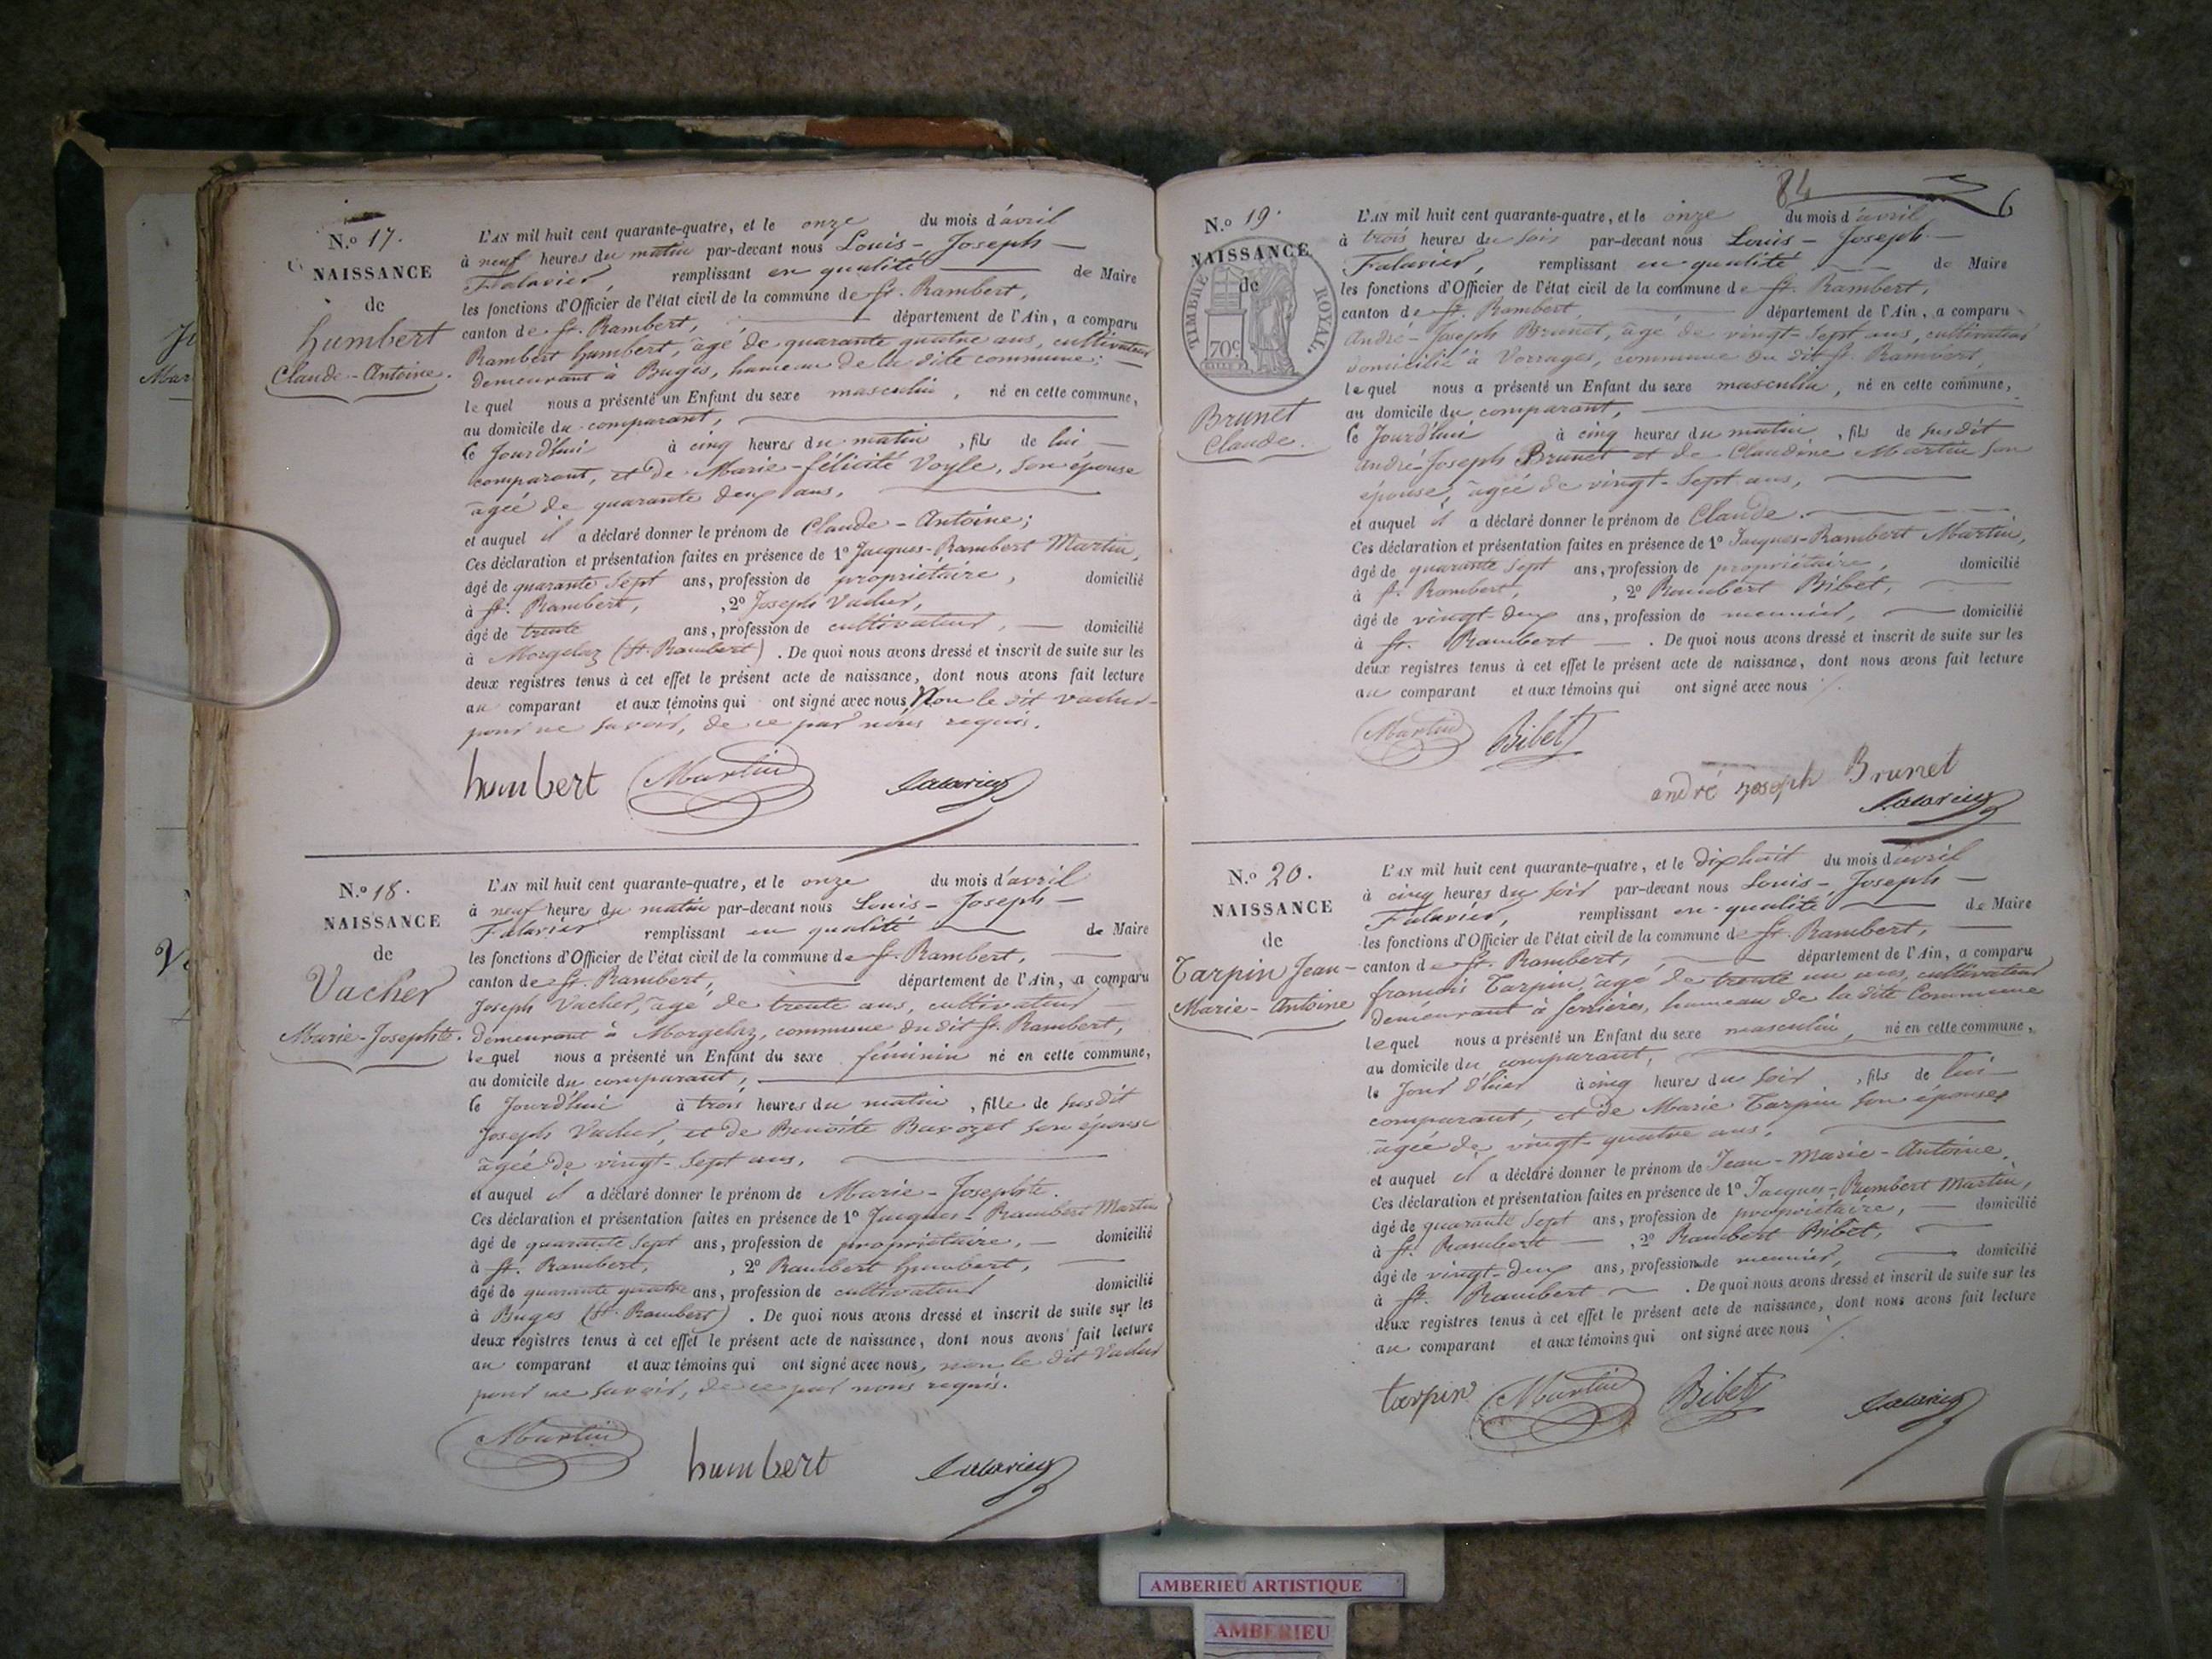 N.o 17.
NAISSANCE
de
humbert
Claude-Antoine.
L'AN mil huit cent quarante-quatre, et le onze du mois d'avril
à neuf heures du matin par-devant nous Louis-Joseph-
Falavier, remplissant en qualité de Maire
les fonctions d'Officier de l'état civil de la commune de St. Rambert,
canton de St. Rambert, département de l'Ain, a comparu
Rambert humbert, âgé de quarante quatre ans, cultivateur
demeurant à Buges, hameau de la dite commune;
lequel nous a présenté un Enfant du sexe masculin, né en cette commune,
au domicile du comparant,
ce Jourd'hui à cinq heures du matin, fils de lui
comparant, et de Marie-félicité Voyle, son épouse
âgée de quarante deux ans,
et auquel il a déclaré donner le prénom de Claude-Antoine;
Ces déclaration et présentation faites en présence de 1º Jacques-Rambert Martin,
âgé de quarante sept ans, profession de propriétaire, domicilié
à St. Rambert, , 2º Joseph Vacher,
âgé de trente ans, profession de cultivateur, domicilié
à Morgelaz (St. Rambert). De quoi nous avons dressé et inscrit de suite sur les
deux registres tenus à cet effet le présent acte de naissance, dont nous avons fait lecture
au comparant et aux témoins qui ont signé avec nous Non le dit Vacher
pour ne savoir, de ce par nous requis.
humbert Martin Falavier
N.o 18.
NAISSANCE
de
Vacher
Marie-Josephte.
L'AN mil huit cent quarante-quatre, et le onze du mois d'avril
à neuf heures du matin par-devant nous Louis-Joseph-
Falavier remplissant en qualité de Maire
les fonctions d'Officier de l'état civil de la commune de St. Rambert,
canton de St. Rambert, département de l'Ain, a comparu
Joseph Vacher, âgé de trente ans, cultivateur
demeurant à Morgelaz, commune du dit St. Rambert,
lequel nous a présenté un Enfant du sexe féminin né en cette commune,
au domicile du comparant,
ce Jourd'hui à trois heures du matin, fille de susdit
Joseph Vacher, et de Benoîte Bavozet son épouse
âgée de vingt-sept ans,
et auquel il a déclaré donner le prénom de Marie-Josephte.
Ces déclaration et présentation faites en présence de 1º Jacques-Rambert Martin
âgé de quarante sept ans, profession de propriétaire, domicilié
à St. Rambert, , 2º Rambert humbert,
âgé de quarante quatre ans, profession de cultivateur domicilié
à Buges (St. Rambert). De quoi nous avons dressé et inscrit de suite sur les
deux registres tenus à cet effet le présent acte de naissance, dont nous avons fait lecture
au comparant et aux témoins qui ont signé avec nous, non le dit Vacher
pour ne savoir, de ce par nous requis.
Martin humbert Falavier
84
6
N.o 19.
NAISSANCE
de
TIMBRE ROYAL.
70c
Brunet
Claude.
L'AN mil huit cent quarante-quatre, et le onze du mois d'avril
à trois heures du soir par-devant nous Louis-Joseph-
Falavier, remplissant en qualité de Maire
les fonctions d'Officier de l'état civil de la commune de St. Rambert,
canton de St. Rambert, département de l'Ain, a comparu
André-Joseph Brunet, âgé de vingt-sept ans, cultivateur
domicilié à Vorrages, commune du dit St. Rambert,
lequel nous a présenté un Enfant du sexe masculin, né en cette commune,
au domicile du comparant,
ce Jourd'hui à cinq heures du matin, fils de susdit
André-Joseph Brunet et de Claudine Martin son
épouse, âgée de vingt-sept ans,
et auquel il a déclaré donner le prénom de Claude.
Ces déclaration et présentation faites en présence de 1º Jacques-Rambert Martin,
âgé de quarante sept ans, profession de propriétaire, domicilié
à St. Rambert, , 2º Rambert Bibet,
âgé de vingt-deux ans, profession de meunier, domicilié
à St. Rambert. De quoi nous avons dressé et inscrit de suite sur les
deux registres tenus à cet effet le présent acte de naissance, dont nous avons fait lecture
au comparant et aux témoins qui ont signé avec nous
Martin Bibet
andré joseph Brunet
Falavier
N.o 20.
NAISSANCE
de
Tarpin Jean-
Marie-Antoine
L'AN mil huit cent quarante-quatre, et le dixhuit du mois d'avril
à cinq heures du soir par-devant nous Louis-Joseph-
Falavier, remplissant en qualité de Maire
les fonctions d'Officier de l'état civil de la commune de St. Rambert,
canton de St. Rambert, département de l'Ain, a comparu
françois Tarpin, âgé de trente un ans, cultivateur
demeurant à Serrières, hameau de la dite Commune
lequel nous a présenté un Enfant du sexe masculin, né en cette commune,
au domicile du comparant,
le Jour d'hier à cinq heures du soir, fils de lui
comparant, et de Marie Tarpin son épouse
âgée de vingt-quatre ans,
et auquel il a déclaré donner le prénom de Jean-Marie-Antoine.
Ces déclaration et présentation faites en présence de 1º Jacques-Rambert Martin,
âgé de quarante sept ans, profession de propriétaire, domicilié
à St. Rambert , 2º Rambert Bibet,
âgé de vingt-deux ans, profession de meunier, domicilié
à St. Rambert. De quoi nous avons dressé et inscrit de suite sur les
deux registres tenus à cet effet le présent acte de naissance, dont nous avons fait lecture
au comparant et aux témoins qui ont signé avec nous
tarpin Martin Bibet Falavier
AMBERIEU ARTISTIQUE
AMBERIEU